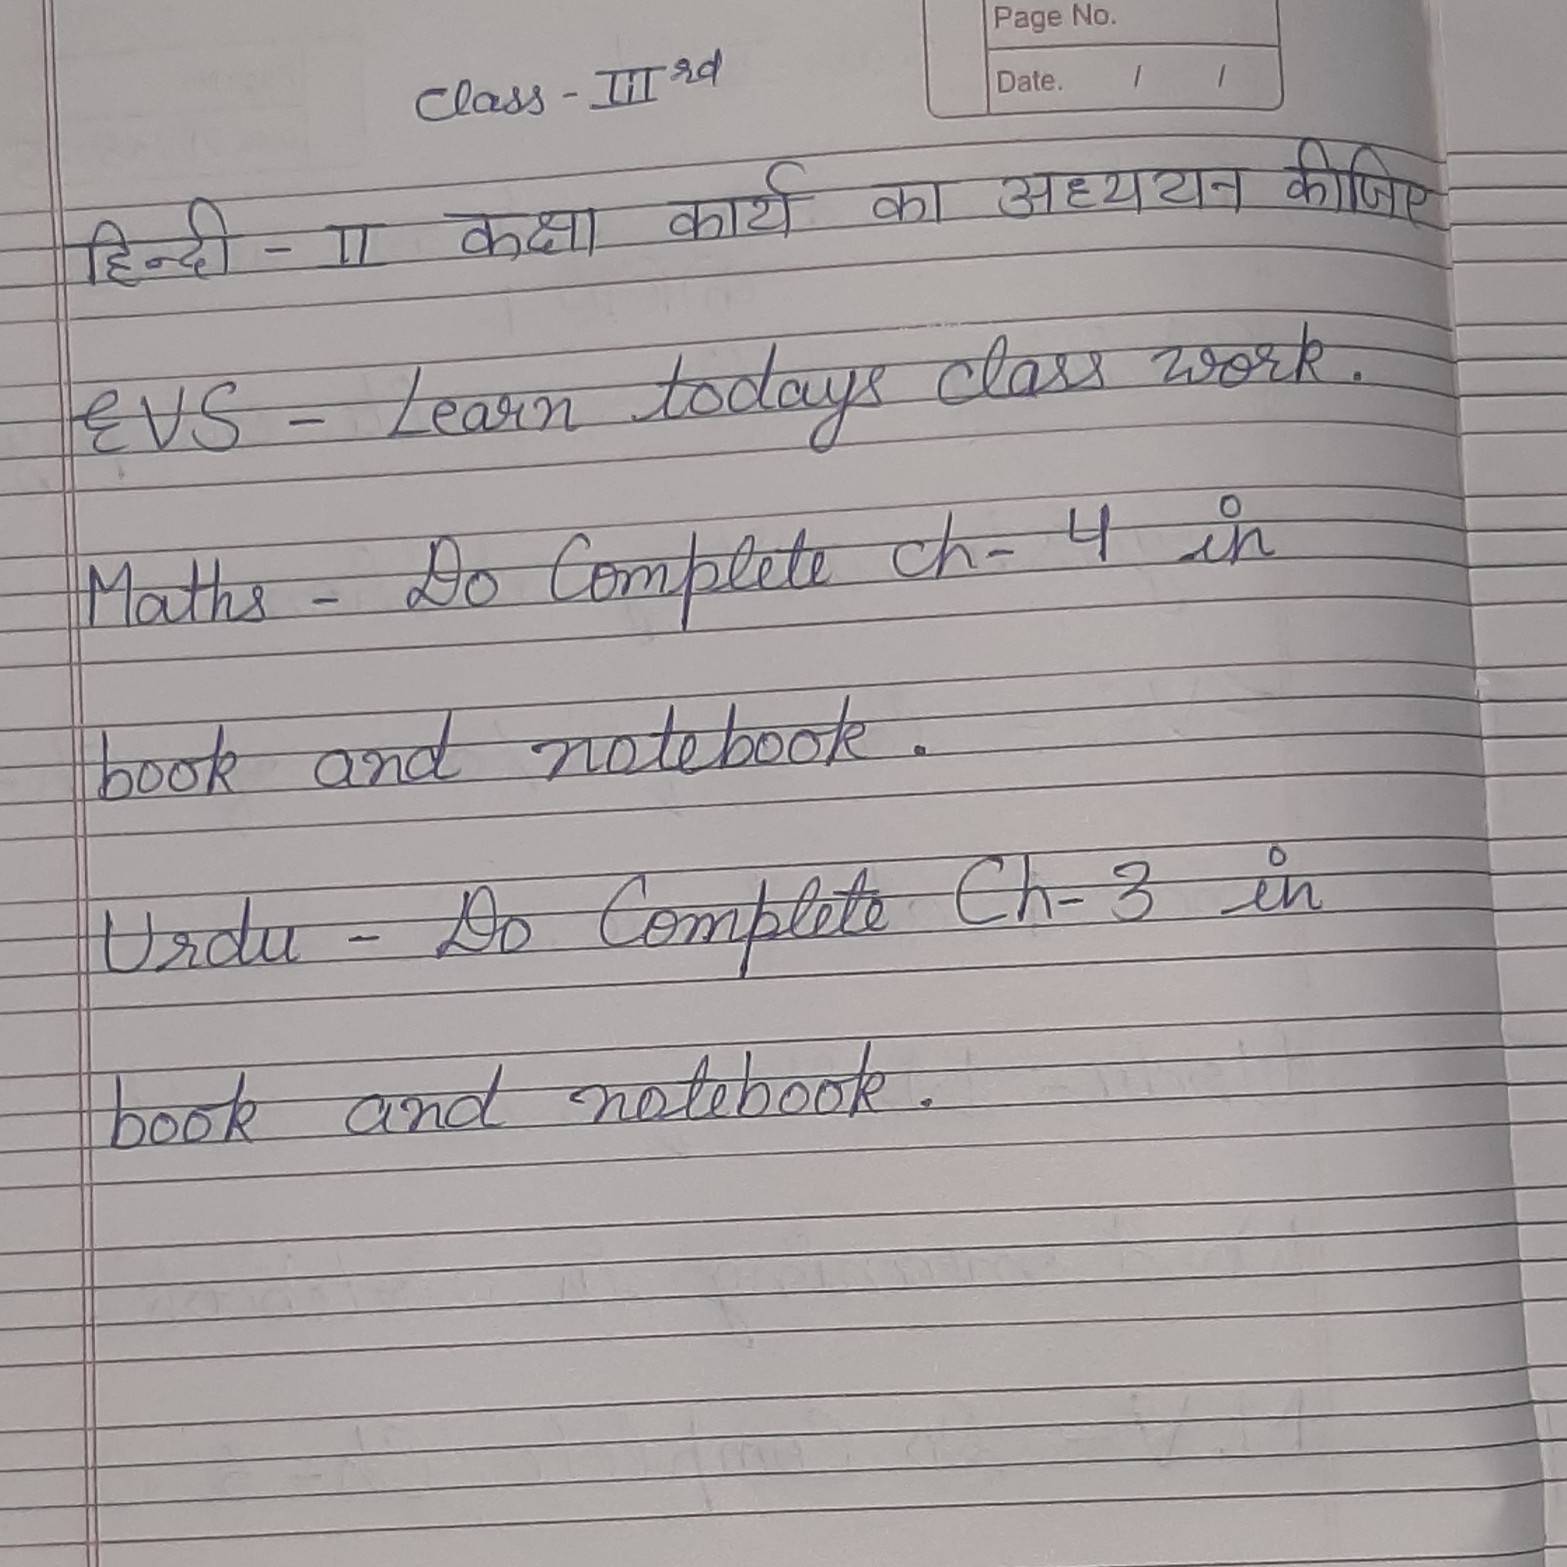 Page No.
Date. / /
Class - III rd
हिन्दी - II कक्षा कार्य का अध्ययन कीजिए
EVS - Learn todays class work.
Maths - Do Complete ch- 4 in
book and notebook.
Urdu - Do Complete Ch- 3 in
book and notebook.